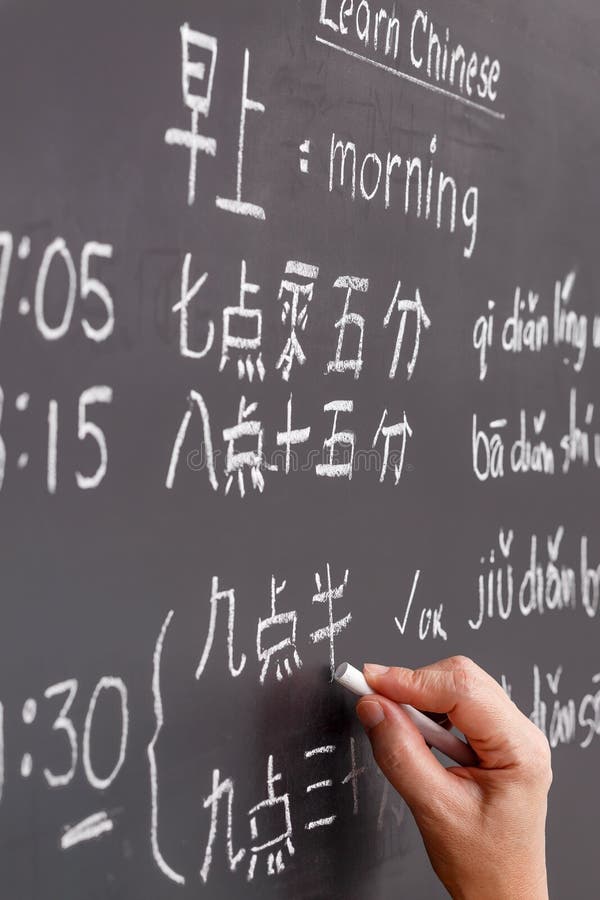 Learn Chinese
早上 : morning
7:05 七点零五分 qi diǎn líng
8:15 八点十五分 bā diǎn shí
九点半 √ OK jiǔ diǎn
:30
九点三十 diǎn